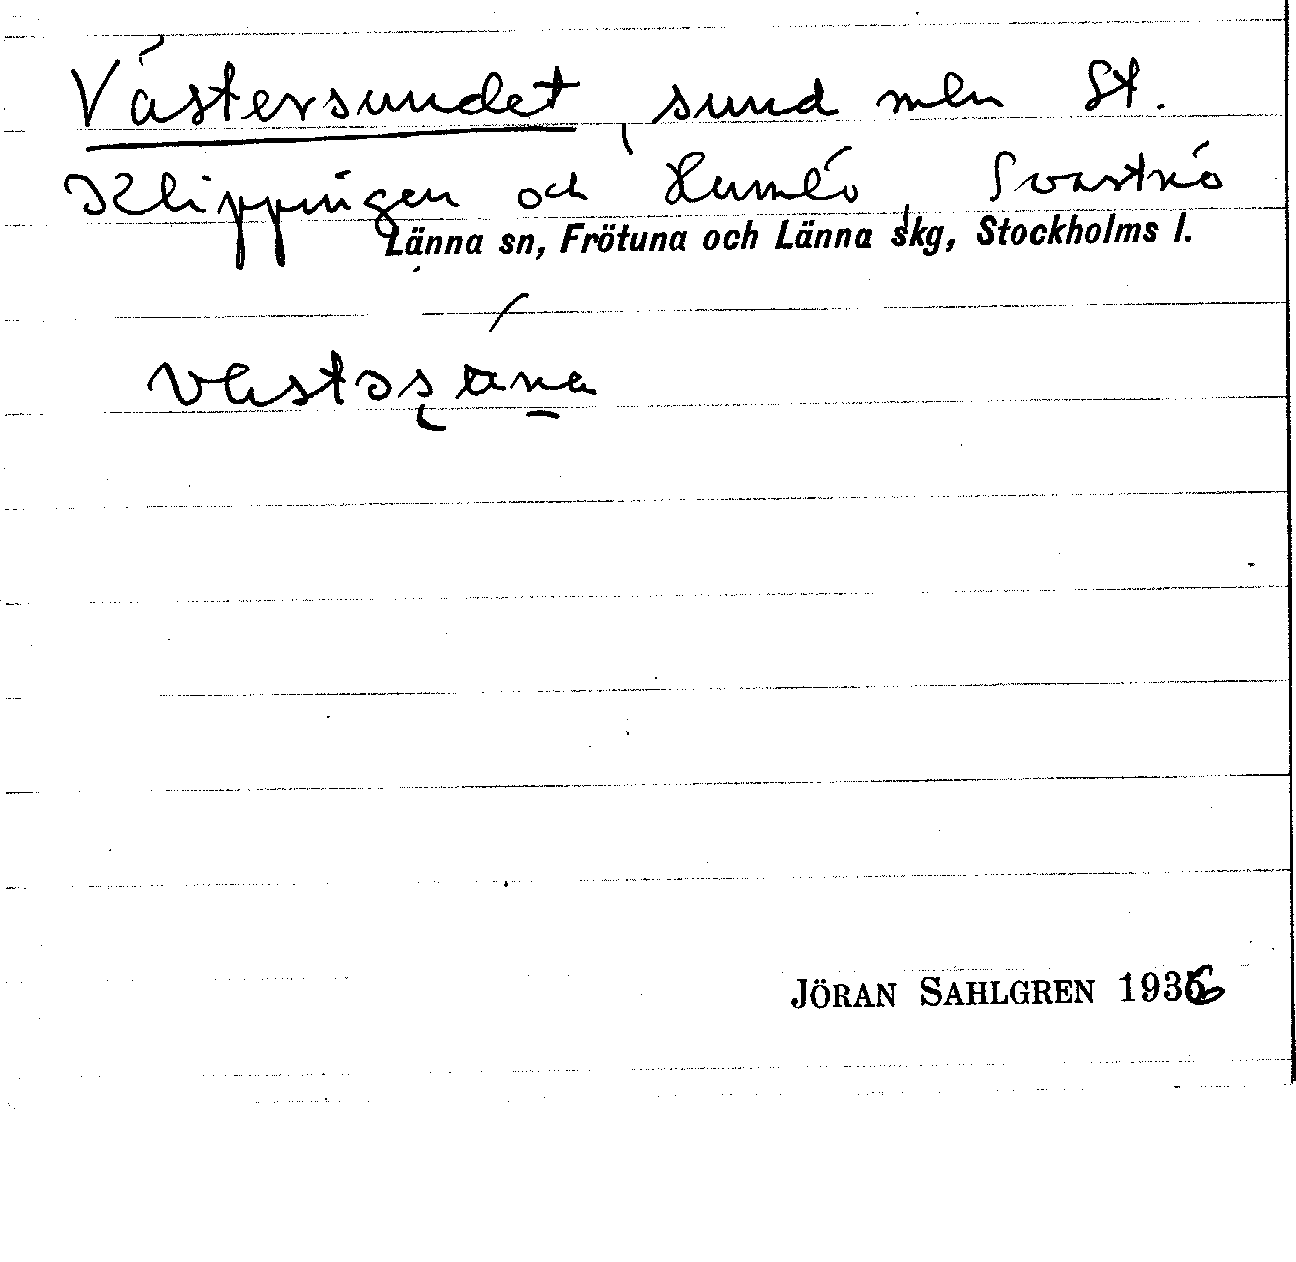 Västersundet, sund mln St.
Klippingen och Humlö, Svartnö
Länna sn, Frötuna och Länna skg, Stockholms l.
JÖRAN SAHLGREN 1936